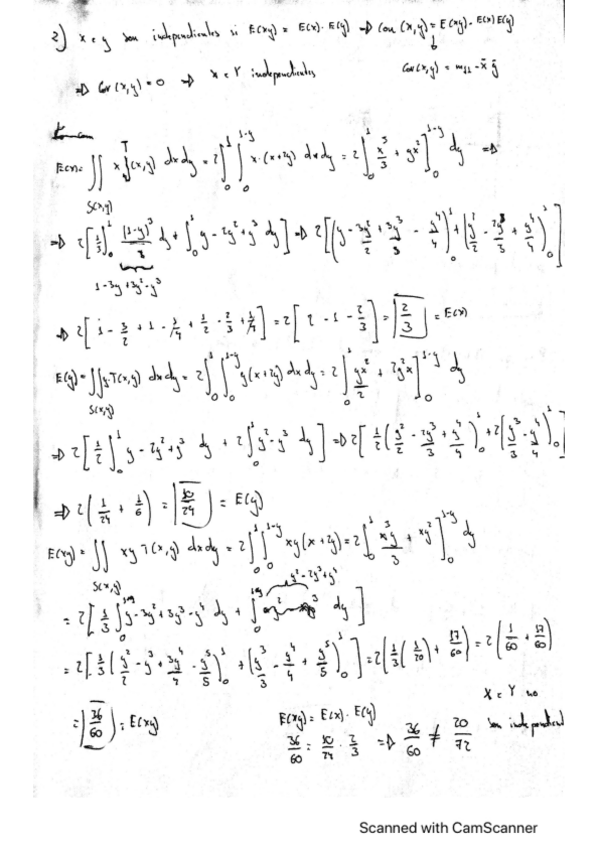 2) x e y son independientes si E(xy) = E(x)·E(y) => Cov(x,y) = E(xy) - E(x)E(y)
=> Cov(x,y) = 0 => x e Y independientes Cov(x,y) = m₁₁ - x̄ ȳ
E(x) = ∬_{S(x,y)} x f(x,y) dxdy = 2∫₀¹∫₀^{1-y} x·(x+2y) dxdy = 2∫₀¹ x³/3 + yx²]₀^{1-y} dy =>
=> 2[1/3∫₀¹ (1-y)³/3 dy + ∫₀¹ y - 2y² + y³ dy] => 2[(y - 3y²/2 + 3y³/3 - y⁴/4)₀¹ + (y²/2 - 2y³/3 + y⁴/4)₀¹]
1 - 3y + 3y² - y³
=> 2[1 - 3/2 + 1 - 1/4 + 1/2 - 2/3 + 1/4] = 2[2 - 1 - 2/3] = 2/3 = E(x)
E(y) = ∬_{S(x,y)} y·f(x,y) dxdy = 2∫₀¹∫₀^{1-y} y(x+2y) dxdy = 2∫₀¹ yx²/2 + 2y²x]₀^{1-y} dy
=> 2[1/2∫₀¹ y - 2y² + y³ dy + 2∫₀¹ y² - y³ dy] => 2[1/2(y²/2 - 2y³/3 + y⁴/4)₀¹ + 2(y³/3 - y⁴/4)₀¹]
=> 2(1/24 + 1/6) = 10/24 = E(y)
E(xy) = ∬_{S(x,y)} xy f(x,y) dxdy = 2∫₀¹∫₀^{1-y} xy(x+2y) = 2∫₀¹ x³y/3 + xy²]₀^{1-y} dy
y² - 2y³ + y⁴
= 2[1/3∫₀ y - 3y² + 3y³ - y⁴ dy + ∫₀ dy]
= 2[1/3(y²/2 - y³ + 3y⁴/4 - y⁵/5)₀¹ + (y³/3 - y⁴/4 + y⁵/5)₀¹] = 2(1/3(1/20) + 17/60) = 2(1/60 + 17/60)
= 36/60 = E(xy)
E(xy) = E(x)·E(y)
36/60 = 10/24 · 2/3 => 36/60 ≠ 20/72
X e Y no
son independient
Scanned with CamScanner